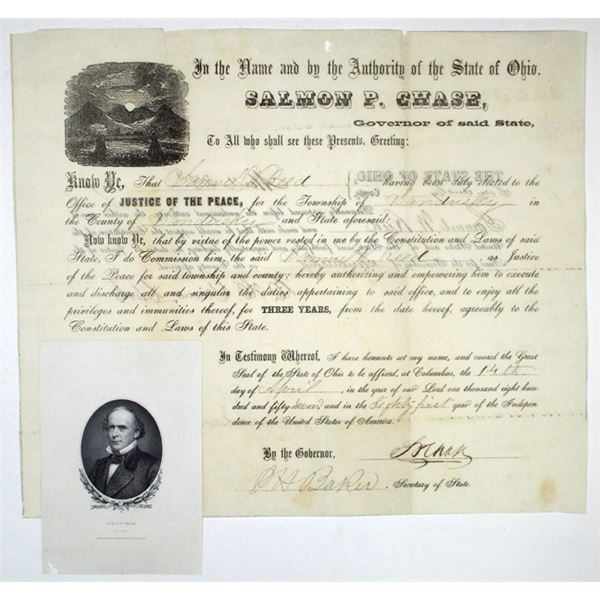 In the Name and by the Authority of the State of Ohio.
SALMON P. CHASE,
Governor of said State,
To All who shall see these Presents, Greeting:
Know Ye, That Samuel Reed having been duly elected to the
Office of JUSTICE OF THE PEACE, for the Township of Sandusky in
the County of and State aforesaid:
Now know Ye, that by virtue of the power vested in me by the Constitution and Laws of said
State, I do Commission him, the said Samuel Reed as Justice
of the Peace for said township and county; hereby authorizing and empowering him to execute
and discharge all and singular the duties appertaining to said office, and to enjoy all the
privileges and immunities thereof, for THREE YEARS, from the date hereof, agreeably to the
Constitution and Laws of this State.
In Testimony Whereof, I have hereunto set my name, and caused the Great
Seal of the State of Ohio to be affixed, at Columbus, the 14th
day of April, in the year of our Lord one thousand eight hun-
dred and fifty-seven and in the Eighty first year of the Indepen-
dence of the United States of America.
By the Governor, S P Chase
J H Baker Secretary of State.